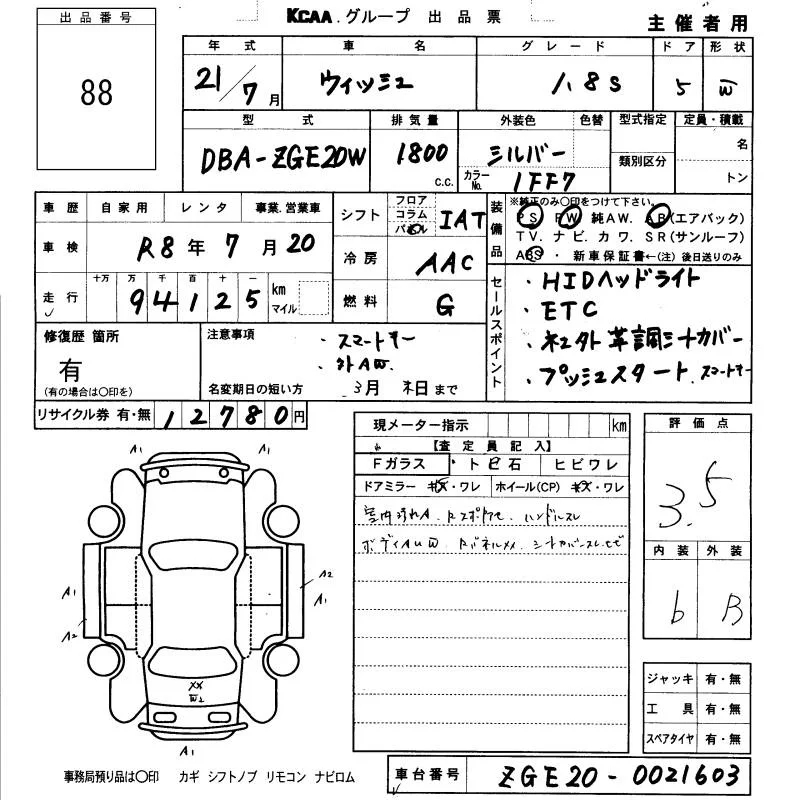 出品番号
88
KCAA.グループ 出品票
主催者用
年式 車名 グレード ドア 形状
21/7月 ウィッシュ 1.8S 5 W
型式 排気量 外装色 色替 型式指定 定員・積載
DBA-ZGE20W 1800 c.c. シルバー 名
カラーNo. 1FF7 類別区分 トン
車歴 自家用 レンタ 事業.営業車
車検 R8年7月20
走行 十万 万 千 百 十 一
94125 km マイル
シフト フロア コラム パネル IAT
冷房 AAC
燃料 G
装備品
※純正のみ〇印をつけて下さい。
PS PW 純AW. AB(エアバック)
TV. ナビ. カワ. SR(サンルーフ)
ABS ・ 新車保証書←(注) 後日送りのみ
セールスポイント
・HIDヘッドライト
・ETC
・社外革調シートカバー
・プッシュスタート スマートキー
修復歴 箇所
有
(有の場合は〇印を)
注意事項
・スマートキー
・外AW
名変期日の短い方 3月 末日まで
リサイクル券 有・無 12780円
現メーター指示 km
【査定員記入】
Fガラス ・トビ石 ヒビワレ
ドアミラー キズ・ワレ ホイール(CP) キズ・ワレ
室内汚れA. ハンドルスレ
ボディAUW.
評価点
3.5
内装 外装
b B
ジャッキ 有・無
工具 有・無
スペアタイヤ 有・無
A1 A1
A1 A2
A2 A1
XX
W2
A
A1
事務局預り品は〇印 カギ シフトノブ リモコン ナビロム
車台番号 ZGE20-0021603